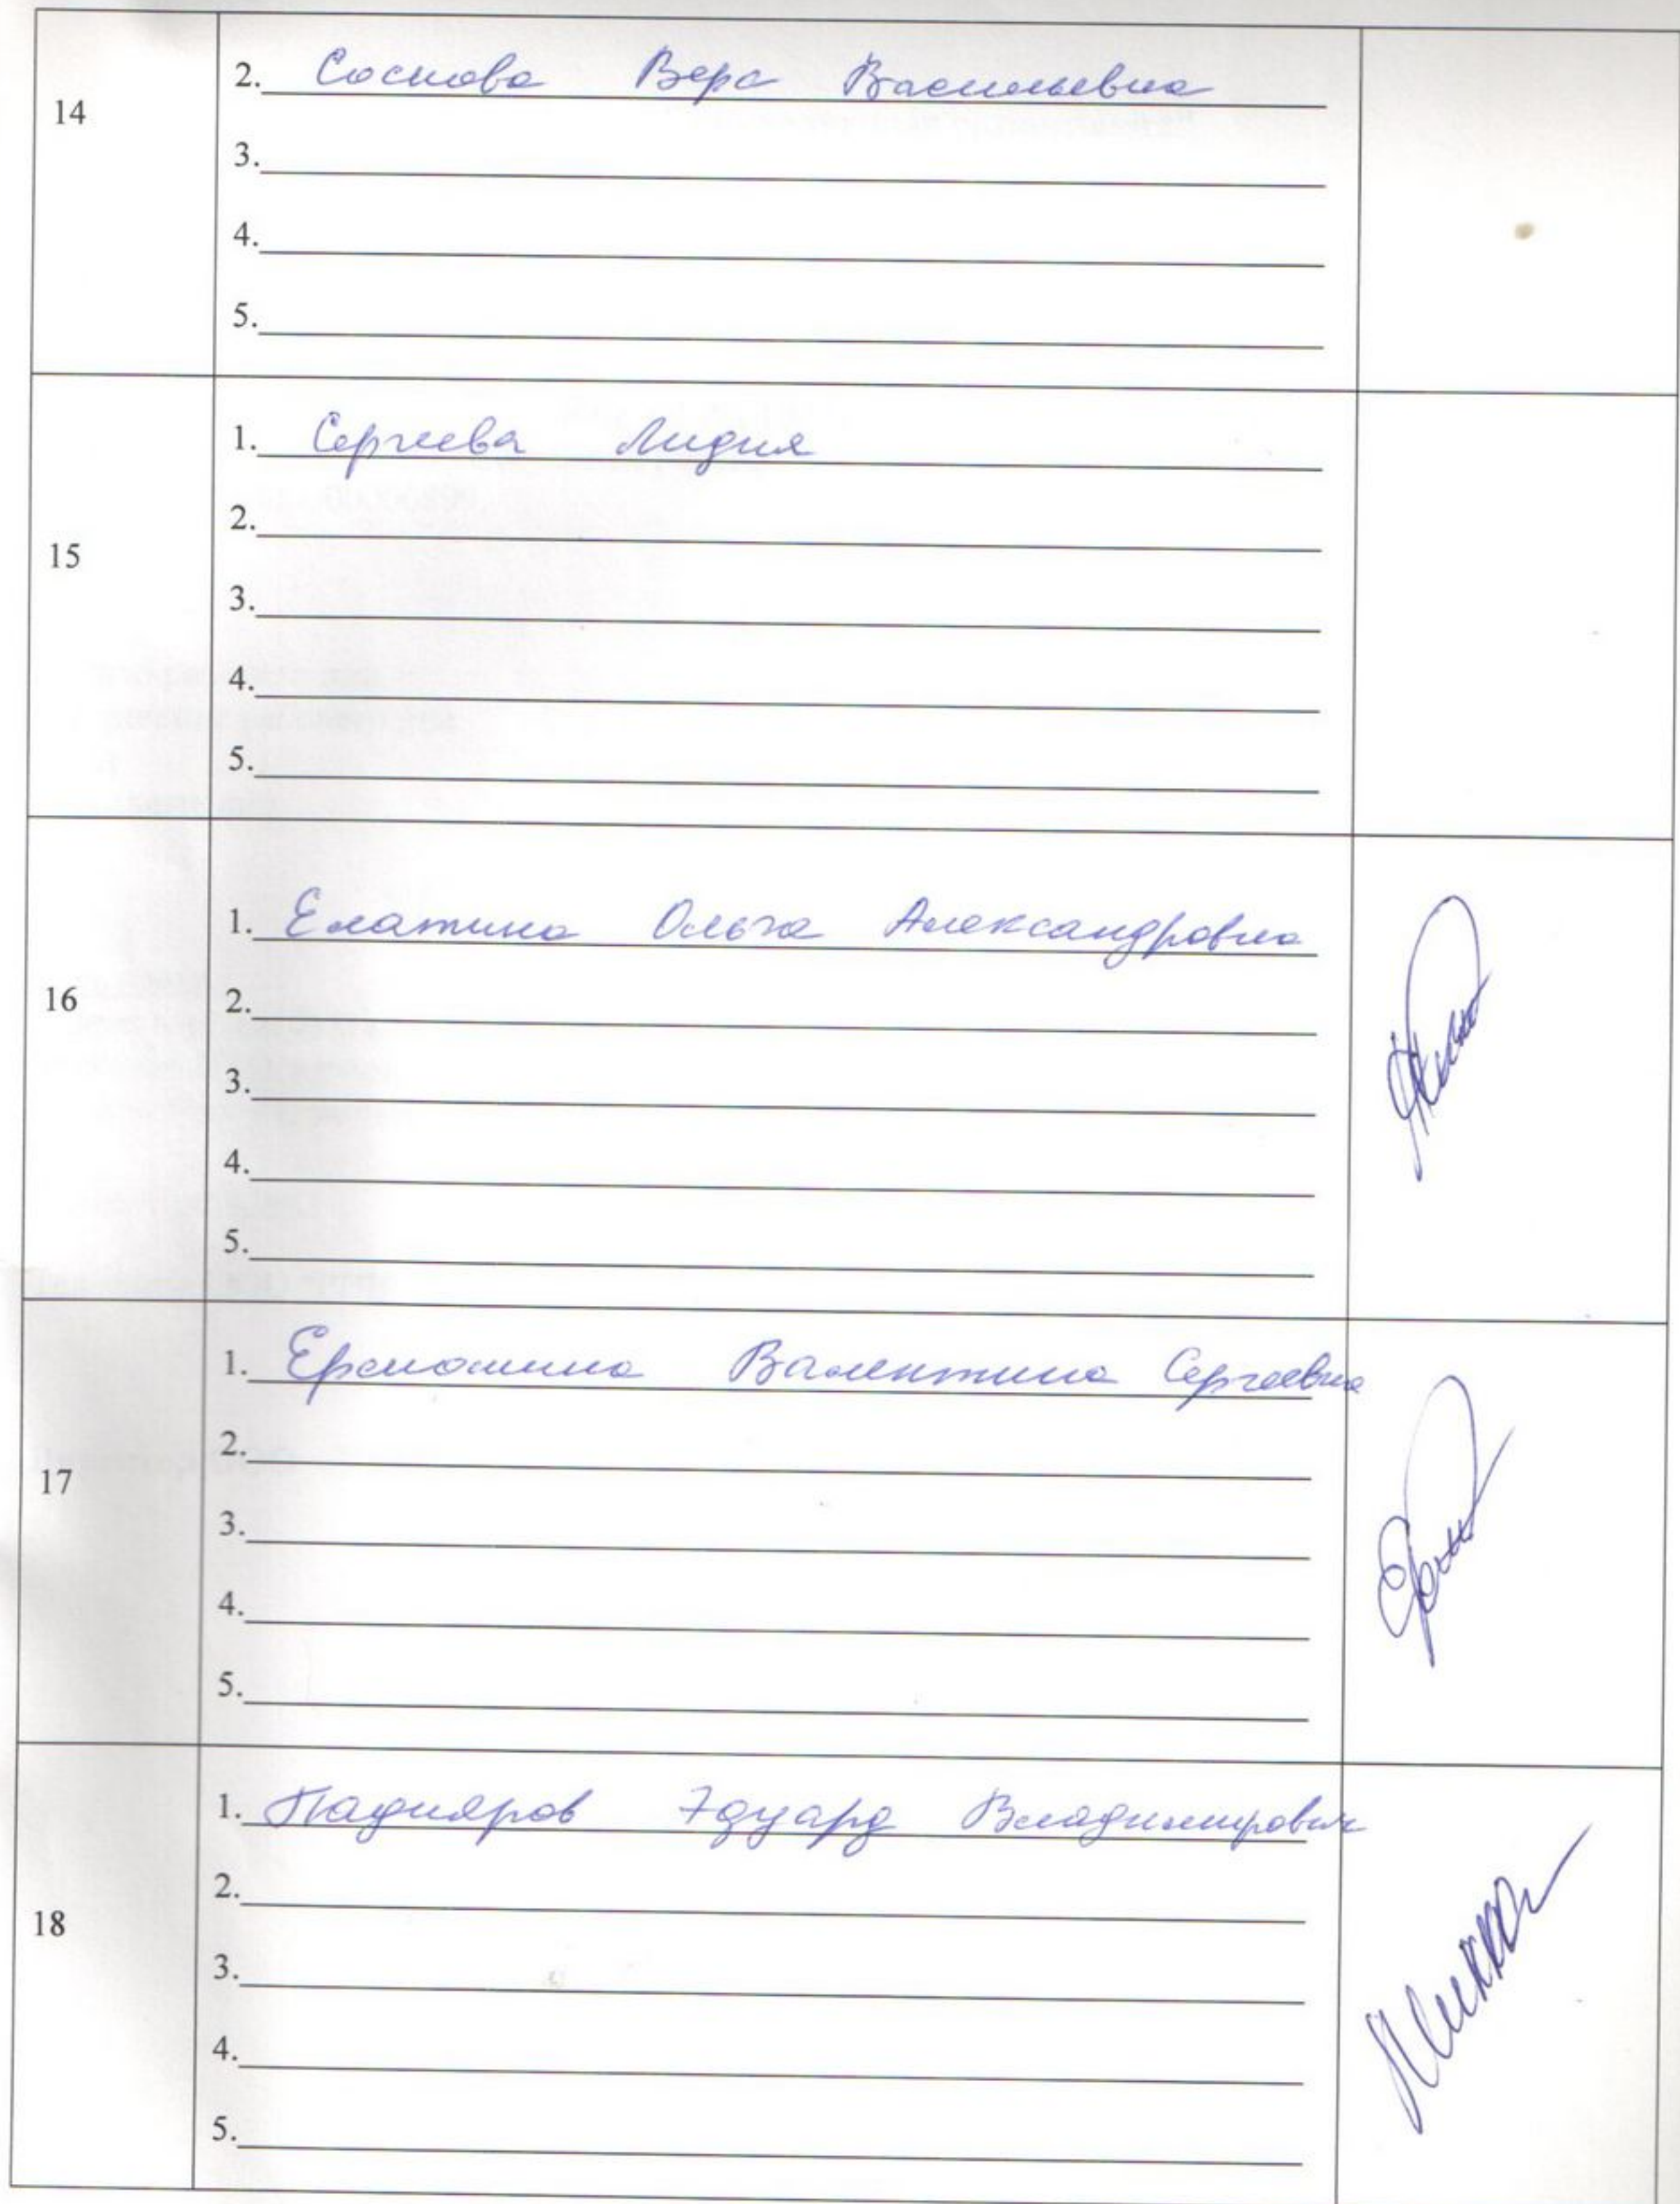 14
2. Соснова Вера Васильевна
3.
4.
5.
15
1. Сергеева Лидия
2.
3.
4.
5.
16
1. Елатина Ольга Александровна
2.
3.
4.
5.
17
1. Ермошина Валентина Сергеевна
2.
3.
4.
5.
18
1. Эдуард Владимирович
2.
3.
4.
5.